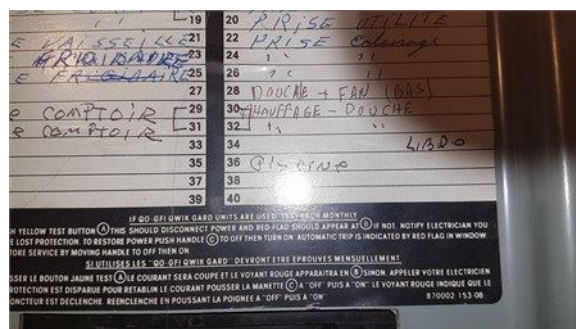 19 20 PRISE UTILITE
E VAISSEILLE 21 22 PRISE
FRIGIDAIRE 23 24 " "
E FRIGIDAIRE 25 26 " "
27 28 DOUCHE + FAN (BAS)
COMPTOIR 29 30 CHAUFFAGE - DOUCHE
E COMPTOIR 31 32 " "
33 34
35 36 PISCINE
37 38
39 40
IF QO-GFI QWIK GARD UNITS ARE USED, TEST EACH MONTHLY
H YELLOW TEST BUTTON (A) THIS SHOULD DISCONNECT POWER AND RED FLAG SHOULD APPEAR AT (B) IF NOT, NOTIFY ELECTRICIAN YOU
E LOST PROTECTION. TO RESTORE POWER PUSH HANDLE (C) TO OFF THEN TURN ON. AUTOMATIC TRIP IS INDICATED BY RED FLAG IN WINDOW.
TORE SERVICE BY MOVING HANDLE TO OFF THEN ON
SI UTILISES LES "QO-GFI QWIK GARD" DEVRONT ETRE EPROUVES MENSUELLEMENT
SSER LE BOUTON JAUNE TEST (A) LE COURANT SERA COUPE ET LE VOYANT ROUGE APPARAITRA EN (B) SINON, APPELER VOTRE ELECTRICIEN
ROTECTION EST DISPARUE POUR RETABLIR LE COURANT POUSSER LA MANETTE (C) A "OFF" PUIS A "ON" LE VOYANT ROUGE INDIQUE QUE LE
ONCTEUR EST DECLENCHE. REENCLENCHE EN POUSSANT LA POIGNEE A "OFF" PUIS A "ON" B70002-153-08